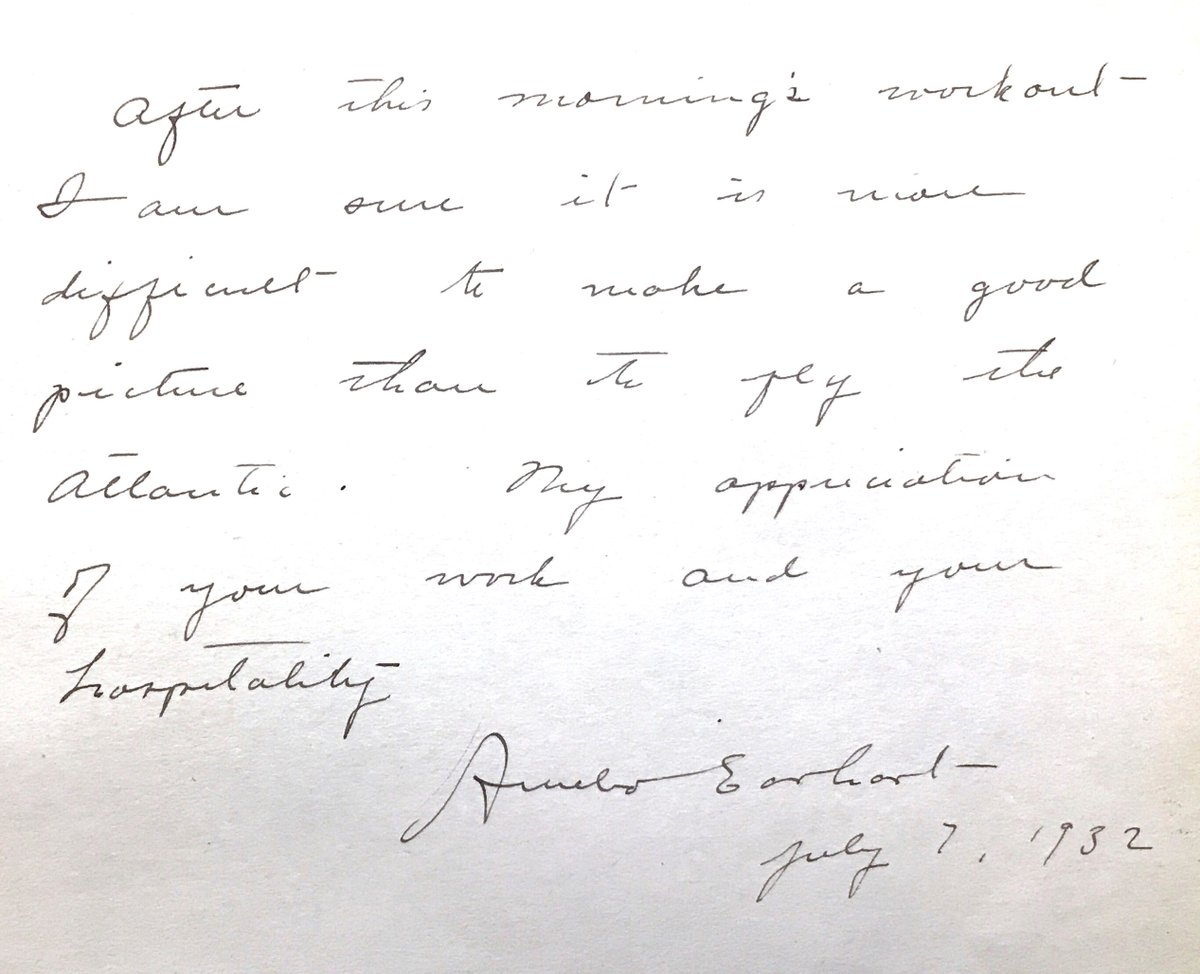 After this morning's workout
I am sure it is more
difficult to make a good
picture than to fly the
Atlantic. My appreciation
of your work and your
hospitality
Amelia Earhart
July 7, 1932